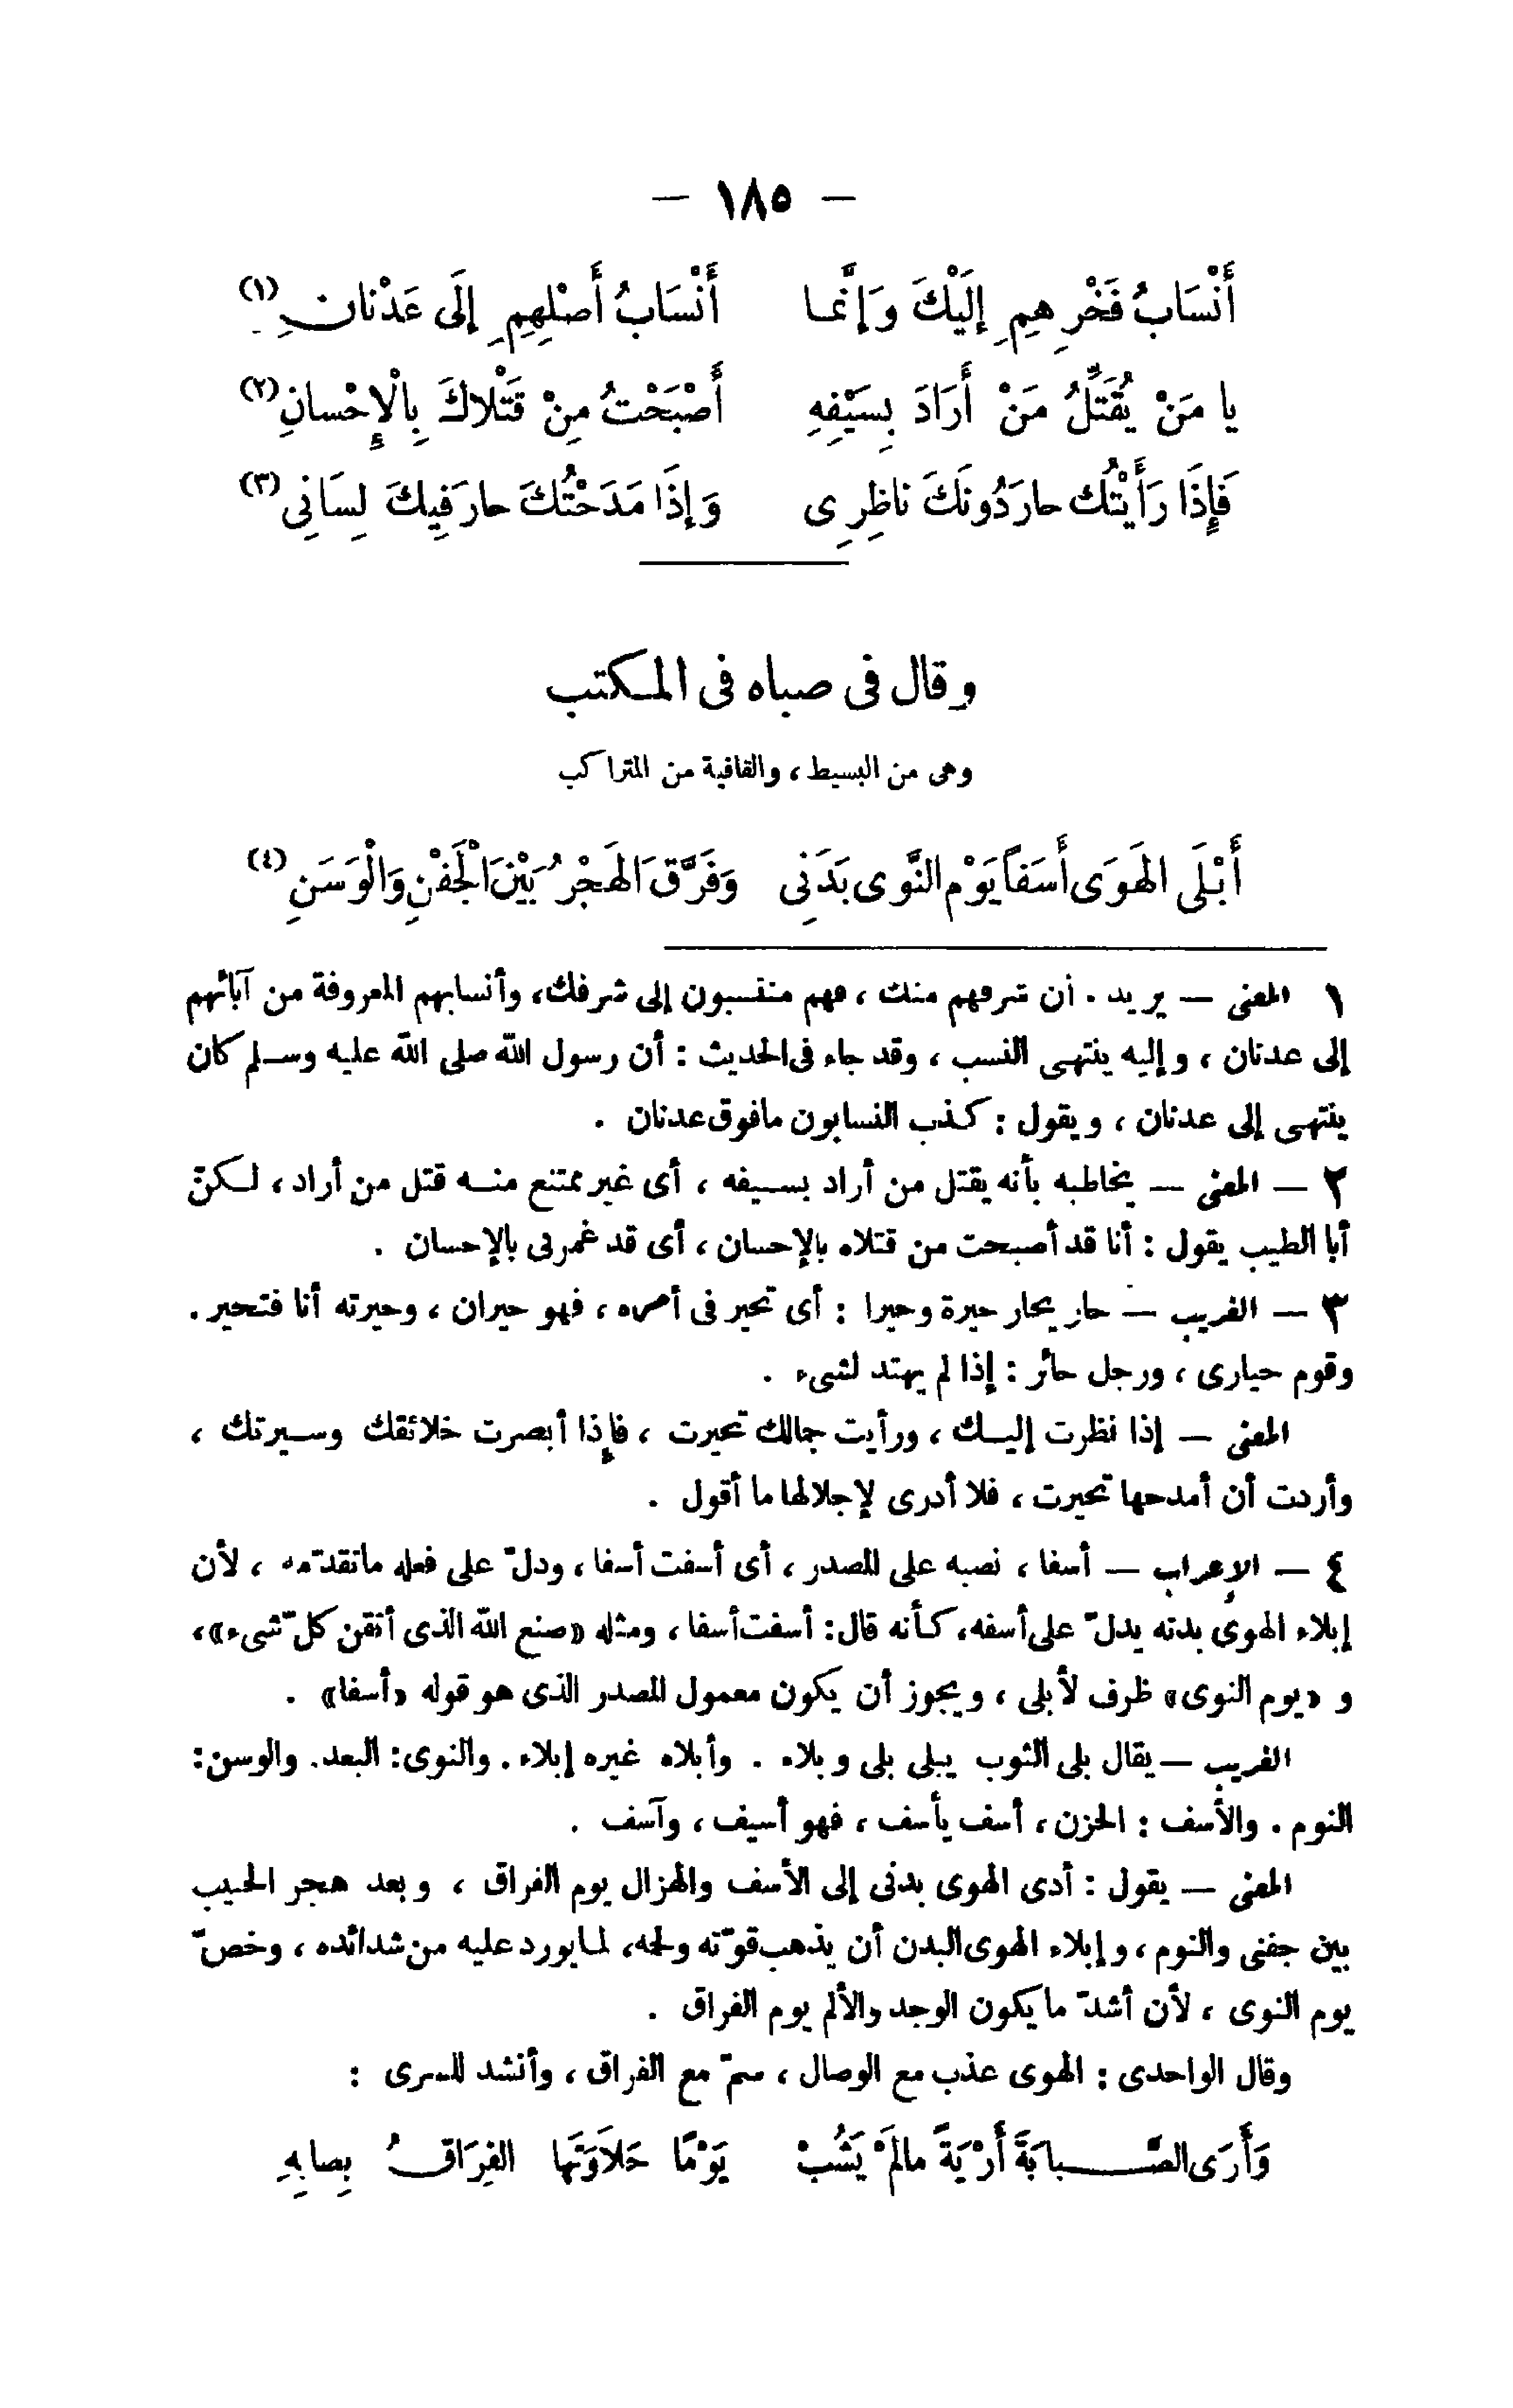 — ١٨٥ —
أَنْسَابُ فَخْرِهِمِ إِلَيْكَ وَإِنَّما أَنْسَابُ أَصْلِهِمِ إِلَى عَدْنانِ (١)
يا مَنْ يُقَتِّلُ مَنْ أَرَادَ بِسَيْفِهِ أَصْبَحْتُ مِنْ قَتْلاَكَ بِالْإِحْسانِ (٢)
فَإِذَا رَأَيْتُكَ حارَ دُونَكَ ناظِرِى وَإِذَا مَدَحْتُكَ حارَ فِيكَ لِسَانِى (٣)
وقال فى صباه فى المكتب
وهى من البسيط ، والقافية من المتراكب
أَبْلَى الْهَوَى أَسَفاً يَوْمَ النَّوَى بَدَنِى وَفَرَّقَ الْهَجْرُ بَيْنَ الْجَفْنِ وَالْوَسَنِ (٤)
١ المعنى — يريد . أن شرفهم منك ، فهم منتسبون إلى شرفك ، وأنسابهم المعروفة من آبائهم
إلى عدنان ، وإليه ينتهى النسب ، وقد جاء فى الحديث : أن رسول الله صلى الله عليه وسلم كان
ينتهى إلى عدنان ، ويقول : كذب النسابون مافوق عدنان .
٢ — المعنى — يخاطبه بأنه يقتل من أراد بسيفه ، أى غير ممتنع منه قتل من أراد ، لكنّ
أبا الطيب يقول : أنا قد أصبحت من قتلاه بالإحسان ، أى قد غمرنى بالإحسان .
٣ — الغريب — حار يحار حيرة وحيرا : أى تحير فى أمره ، فهو حيران ، وحيرته أنا فتحير .
وقوم حيارى ، ورجل حائر : إذا لم يهتد لشىء .
المعنى — إذا نظرت إليك ، ورأيت جمالك تحيرت ، فإذا أبصرت خلائقك وسيرتك ،
وأردت أن أمدحها تحيرت ، فلا أدرى لإجلالها ما أقول .
٤ — الإعراب — أسفا ، نصبه على المصدر ، أى أسفت أسفا ، ودلّ على فعله ماتقدّمه ، لأن
إبلاء الهوى بدنه يدلّ على أسفه ، كأنه قال : أسفت أسفا ، ومثله «صنع الله الذى أتقن كلّ شىء» ،
و «يوم النوى» ظرف لأبلى ، ويجوز أن يكون معمول المصدر الذى هو قوله «أسفا» .
الغريب — يقال بلى الثوب يبلى بلى وبلاء . وأبلاه غيره إبلاء . والنوى : البعد . والوسن :
النوم . والأسف : الحزن ، أسف يأسف ، فهو أسيف ، وآسف .
المعنى — يقول : أدى الهوى بدنى إلى الأسف والهزال يوم الفراق ، وبعد هجر الحبيب
بين جفنى والنوم ، وإبلاء الهوى البدن أن يذهب قوّته ولحمه ، لما يورد عليه من شدائده ، وخصّ
يوم النوى ، لأن أشدّ ما يكون الوجد والألم يوم الفراق .
وقال الواحدى : الهوى عذب مع الوصال ، سمّ مع الفراق ، وأنشد للسرى :
وَأَرَى الصَّبابَةَ أَرْيَةً مالَمْ يَشُبْ يَوْمًا حَلاَوَتَها الفِرَاقُ بِصابِهِ